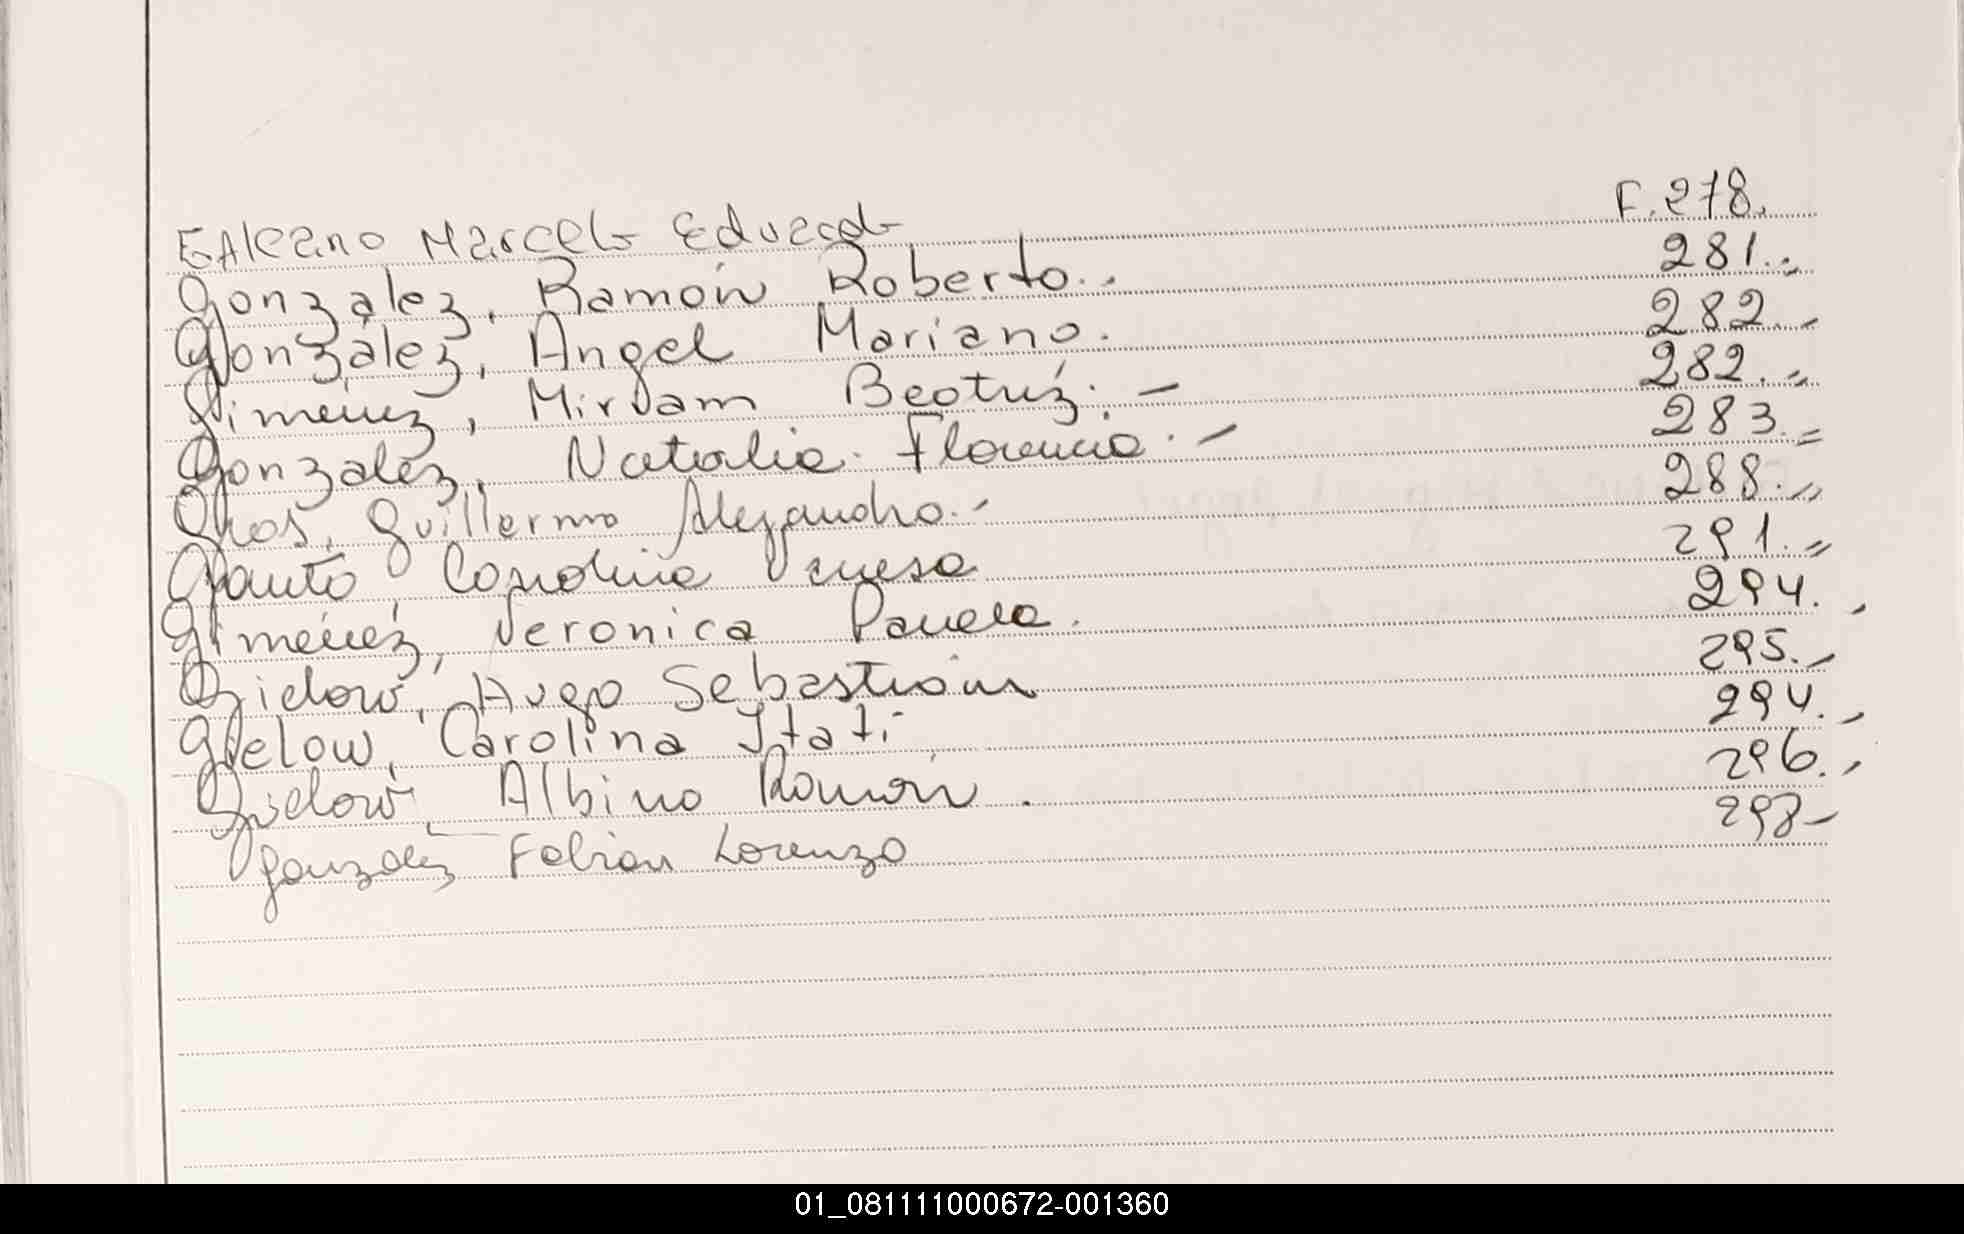 GAleano Marcelo Eduardo F. 278.
Gonzalez, Ramón Roberto.. 281..
Gonzàlez, Angel Mariano. 282.-
Gimenez, Miryam Beatriz. - 282..-
Gonzalez, Natalia Florencia. - 283.=
Guillermo Alejandro.- 288.
Gauto Carolina Vanesa 291.=
Giménez, Veronica Pamela. 294.
Gielow, Hugo Sebastián 295.-
Gielow, Carolina Itati 294.-
Gielow, Albino Ramón. 296.-
Gonzalez Fabian Lorenzo 298-
01_081111000672-001360